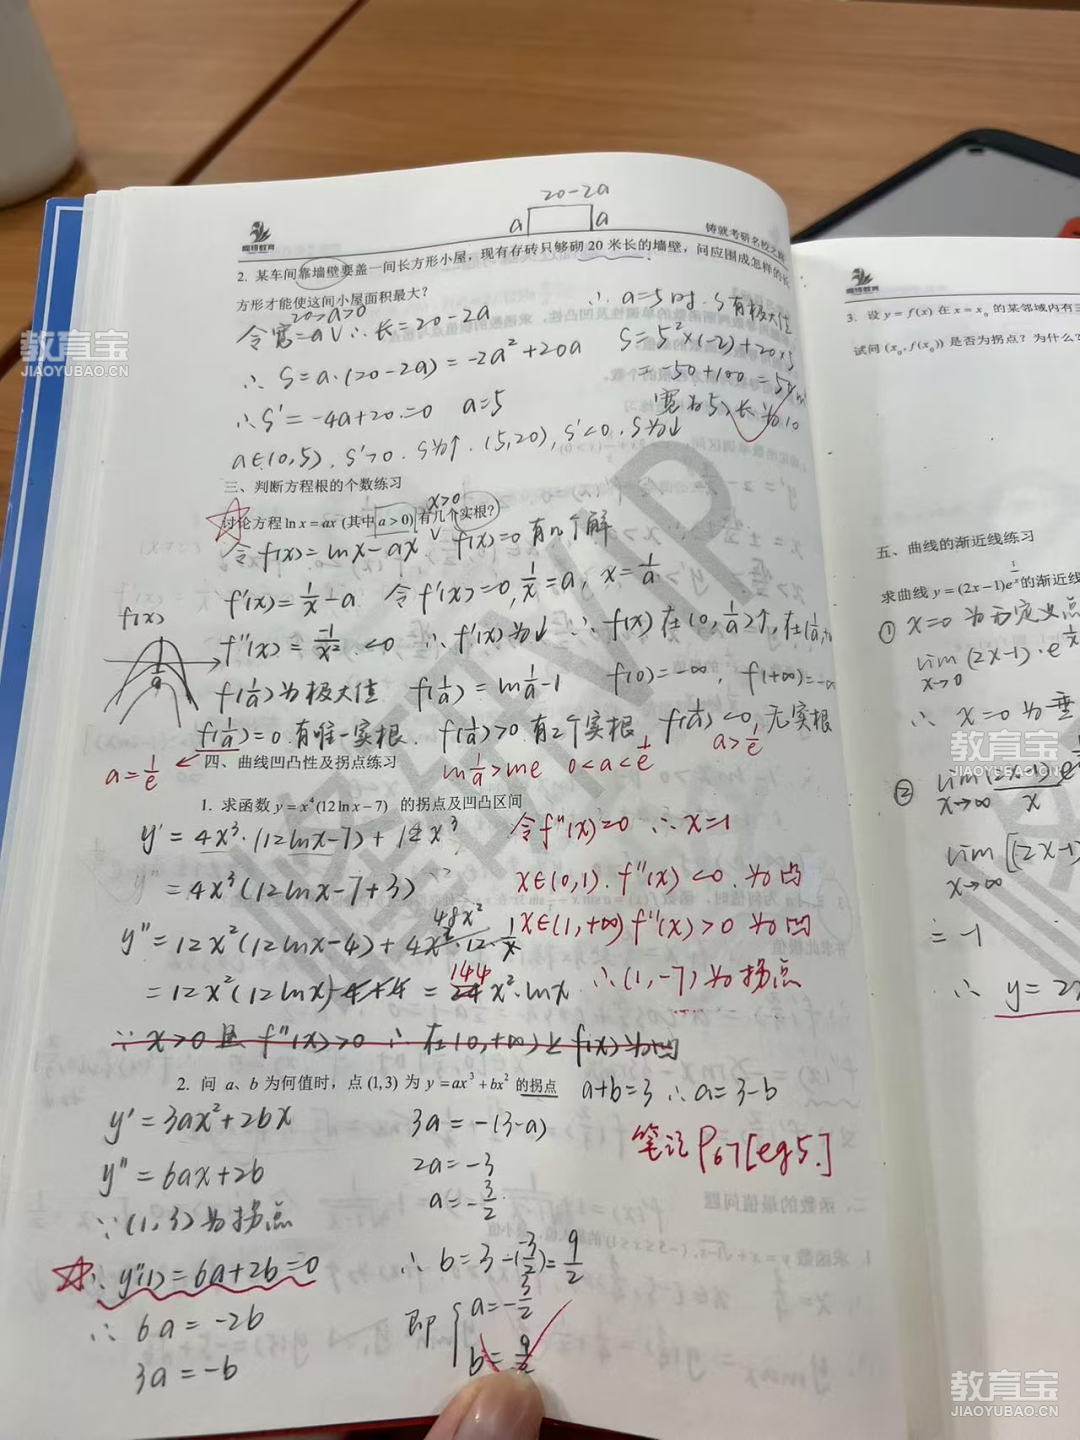 20-2a
a
a
教育宝
JIAOYUBAO.CN
铸就考研名校之路
2. 某车间靠墙壁要盖一间长方形小屋，现有存砖只够砌 20 米长的墙壁，问应围成怎样的长
方形才能使这间小屋面积最大？
20>a>0
令宽=a ∨ ∴长=20-2a
∴ S=a·(20-2a)=-2a²+20a
∴S'=-4a+20=0 a=5
a∈(0,5), S'>0. S为↑. (5,20), S'<0. S为↓
∴ a=5时. S有极大值
S=5²×(-2)+20×5
=-50+100
宽为5, 长为10
三、判断方程根的个数练习
x>0
讨论方程 ln x = ax (其中 a > 0) 有几个实根?
令f(x)=lnx-ax f(x)=0有几个解
f'(x)=1/x-a 令f'(x)=0, 1/x=a, x=1/a
f(x)
f''(x)=-1/x²<0 ∴f'(x)为↓ ∴f(x)在(0,1/a)↑,在(1/a,
f(1/a)为极大值 f(1/a)=ln1/a-1 f(0)=-∞, f(+∞)=-∞
f(1/a)=0.有唯一实根. f(1/a)>0.有2个实根 f(1/a)<0,无实根
a=1/e ln1/a>lne 0<a<1/e a>1/e
四、曲线凹凸性及拐点练习
1. 求函数 y = x⁴(12 ln x − 7) 的拐点及凹凸区间
y'=4x³·(12lnx-7)+12x³
y''=4x³(12lnx-7+3)
48x²
y''=12x²(12lnx-4)+4x³·12·1/x
=12x²(12lnx-4+4)=144 24 x²·lnx
∵x>0且f''(x)>0 ∴在(0,+∞)上f(x)为凹
令f''(x)=0 ∴x=1
x∈(0,1). f''(x)<0.为凸
x∈(1,+∞) f''(x)>0 为凹
∴(1,-7)为拐点
2. 问 a、b 为何值时，点 (1,3) 为 y = ax³ + bx² 的拐点
a+b=3 ∴a=3-b
y'=3ax²+2bx
y''=6ax+2b
∵(1,3)为拐点
∴y''(1)=6a+2b=0
∴ 6a=-2b
3a=-b
3a=-(3-a)
2a=-3
a=-3/2
∴ b=3-(-3/2)=9/2
即 a=-3/2
b=9/2
笔记P67[eg5.]
3. 设 y = f(x) 在 x = x₀ 的某邻域内有三
试问 (x₀, f(x₀)) 是否为拐点？为什么？
五、曲线的渐近线练习
求曲线 y = (2x−1)e^{1/x} 的渐近线
① x=0 为无定义点
lim x→0 (2x-1)·e^{1/x}
∴ x=0为垂
教育宝
JIAOYUBAO.CN
② lim x→∞ (2x-1)e / x
lim x→∞ [(2x-1)
= -1
∴ y=2x
教育宝
JIAOYUBAO.CN